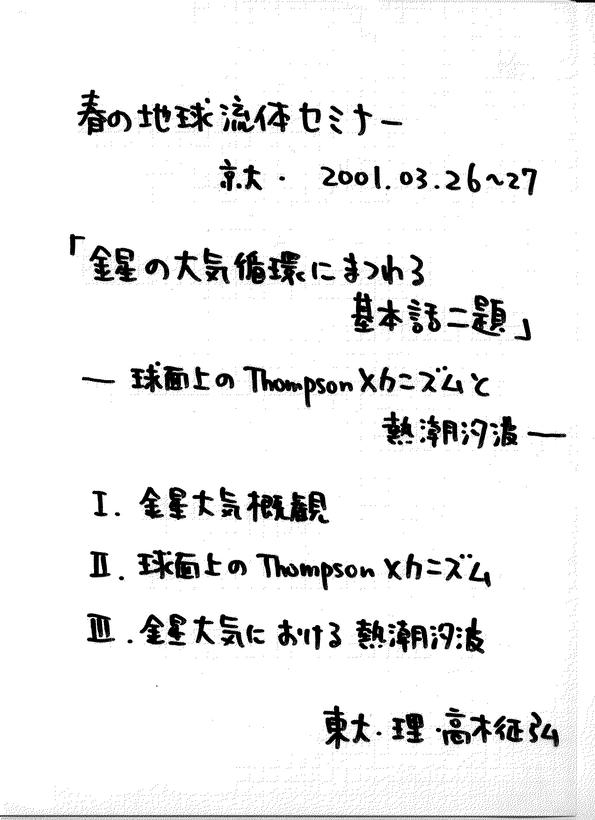 春の地球流体セミナー
京大・ 2001.03.26〜27
「金星の大気循環にまつわる
基本話二題」
— 球面上のThompsonメカニズムと
熱潮汐波 —
Ⅰ. 金星大気概観
Ⅱ. 球面上のThompsonメカニズム
Ⅲ. 金星大気における熱潮汐波
東大・理・高木征弘